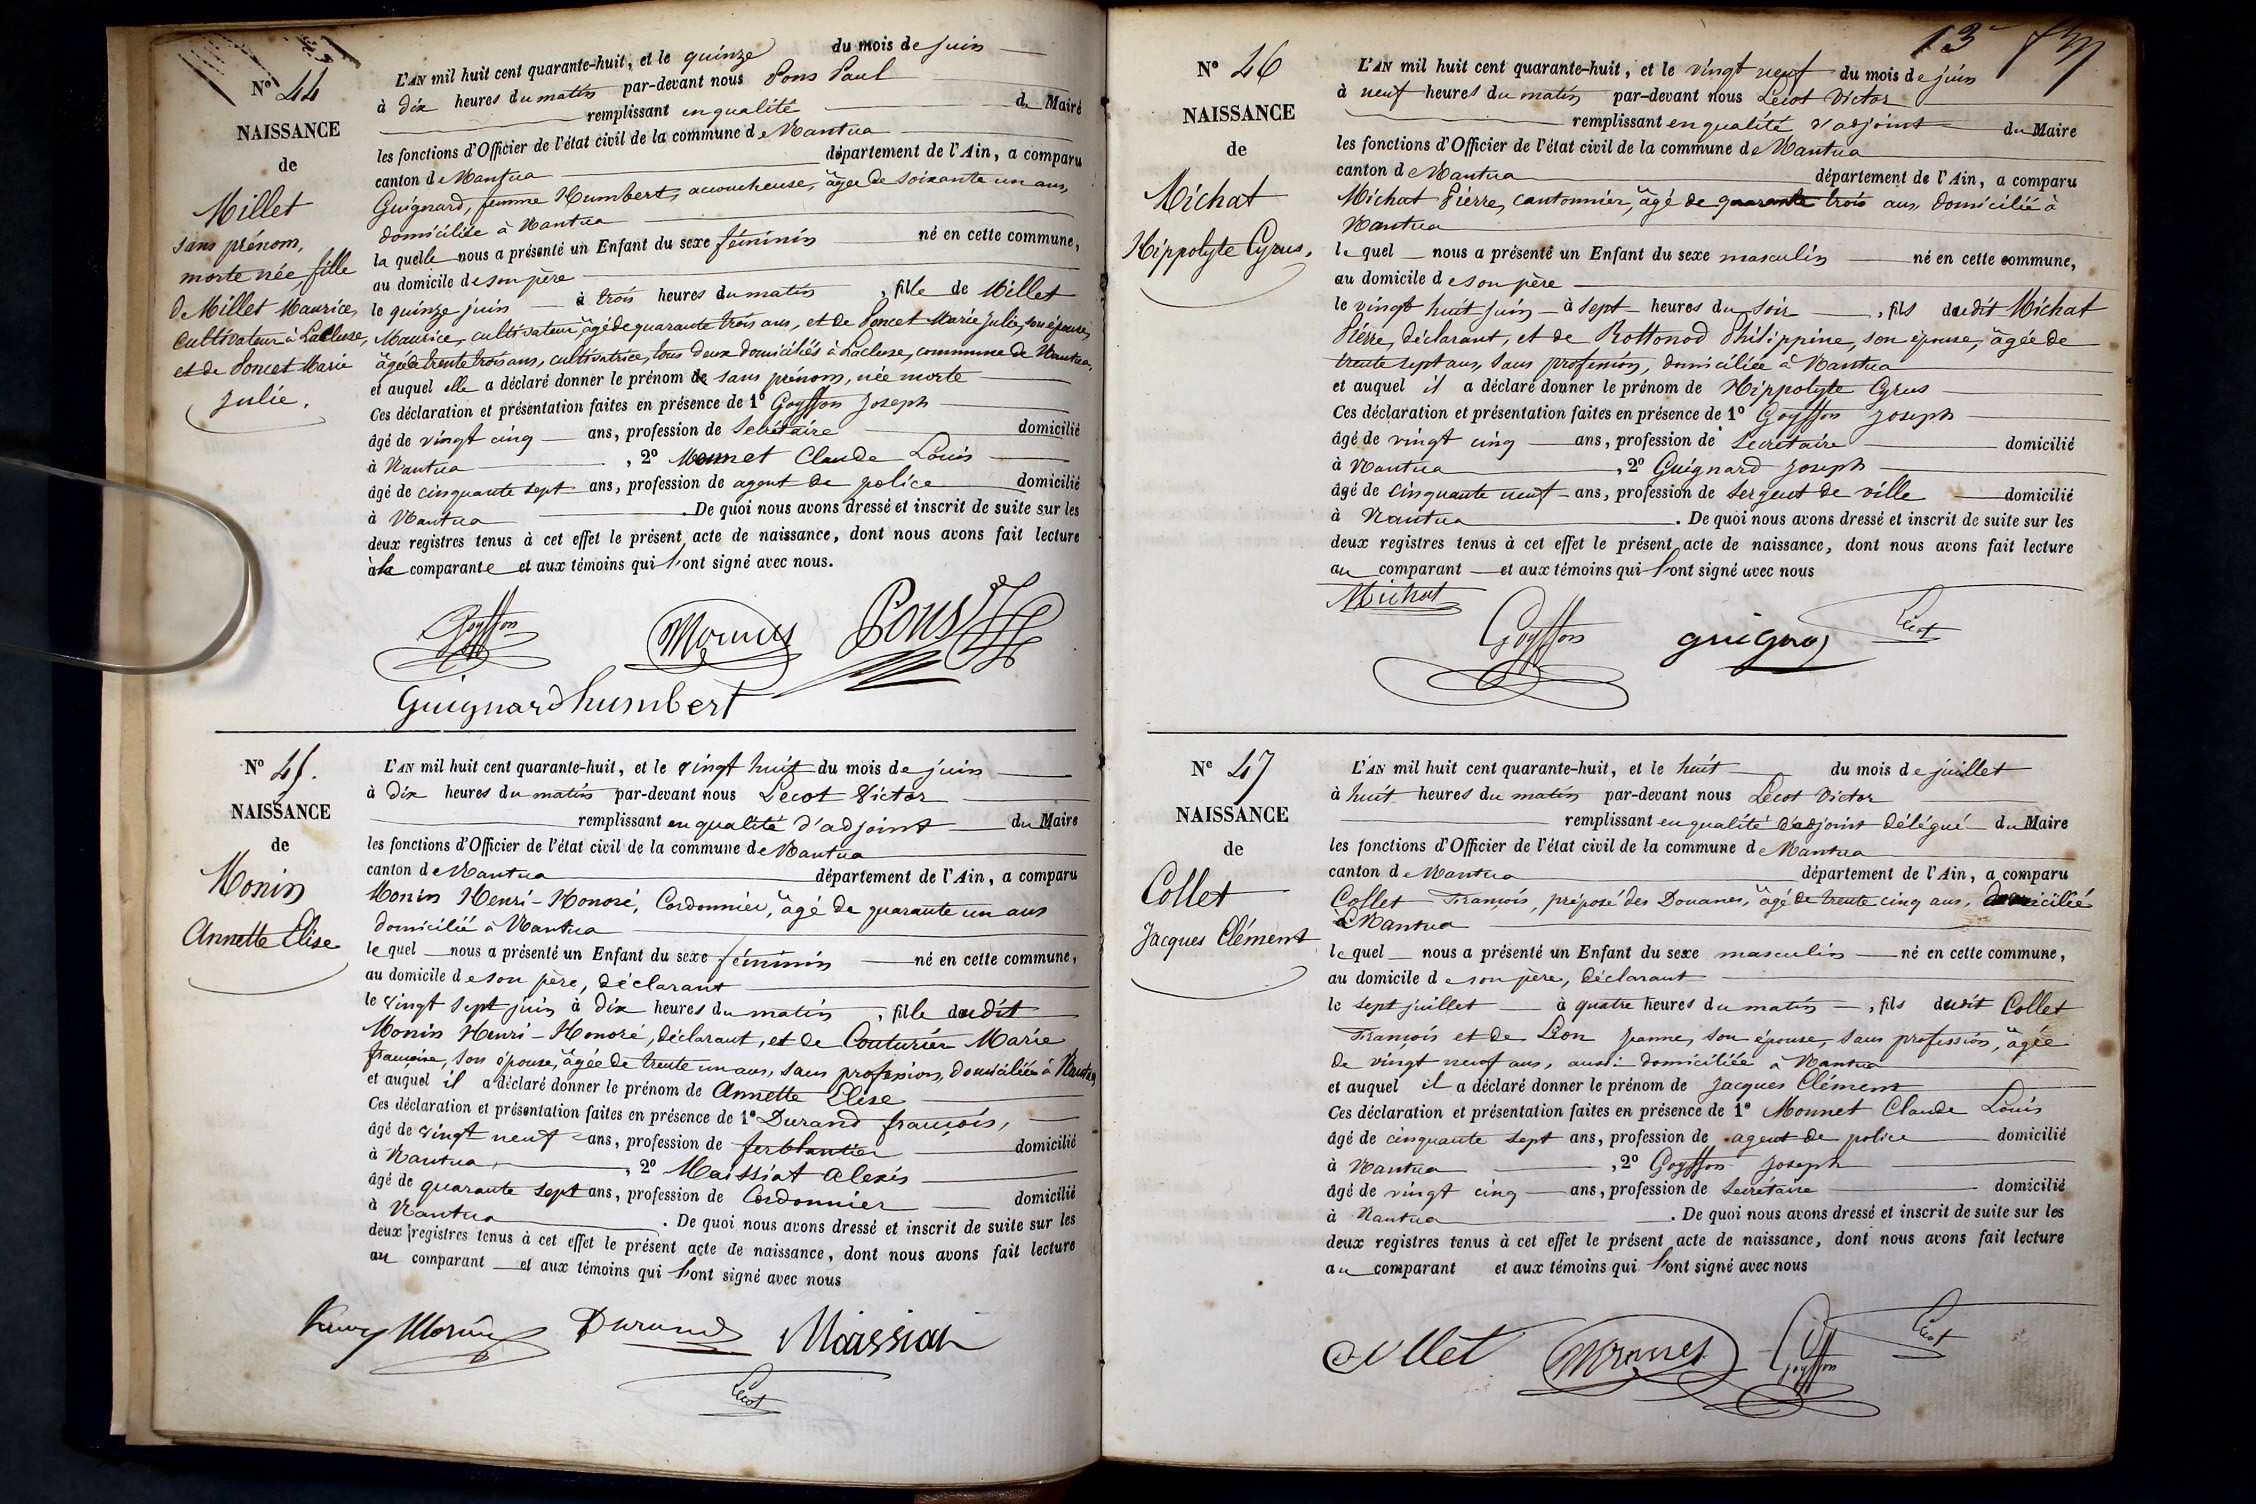 N° 44
NAISSANCE
de
Millet
sans prénom,
morte née fille
de Millet Maurice,
Cultivateur à Lacluse,
et de Poncet Marie
Julie.
L'AN mil huit cent quarante-huit, et le quinze du mois de juin
à dix heures du matin par-devant nous Pons Paul
remplissant en qualité de Maire
les fonctions d'Officier de l'état civil de la commune de Nantua
canton de Nantua département de l'Ain, a comparu
Guignard, femme Humbert, accoucheuse, âgée de soixante un ans,
domiciliée à Nantua
la quelle nous a présenté un Enfant du sexe féminin né en cette commune,
au domicile de son père
le quinze juin à trois heures du matin, fille de Millet
Maurice, cultivateur âgé de quarante trois ans, et de Poncet Marie Julie, son épouse,
âgée de trente trois ans, cultivatrice, tous deux domiciliés à Lacluse, commune de Nantua,
et auquel elle a déclaré donner le prénom de sans prénom, née morte
Ces déclaration et présentation faites en présence de 1° Goyffon Joseph
âgé de vingt cinq ans, profession de Secrétaire domicilié
à Nantua, 2° Monnet Claude Louis
âgé de cinquante sept ans, profession de agent de police domicilié
à Nantua. De quoi nous avons dressé et inscrit de suite sur les
deux registres tenus à cet effet le présent acte de naissance, dont nous avons fait lecture
à la comparante et aux témoins qui l'ont signé avec nous.
Goyffon Monnet Pons
Guignard humbert
N° 45.
NAISSANCE
de
Monin
Annette Elise
L'AN mil huit cent quarante-huit, et le vingt huit du mois de juin
à dix heures du matin par-devant nous Lecot Victor
remplissant en qualité d'adjoint du Maire
les fonctions d'Officier de l'état civil de la commune de Nantua
canton de Nantua département de l'Ain, a comparu
Monin Henri-Honoré, Cordonnier, âgé de quarante un ans
domicilié à Nantua
le quel nous a présenté un Enfant du sexe féminin né en cette commune,
au domicile de son père, déclarant
le vingt sept juin à dix heures du matin, fille dudit
Monin Henri-Honoré, déclarant, et de Couturier Marie
françoise, son épouse, âgée de trente un ans, sans profession, domiciliée à Nantua,
et auquel il a déclaré donner le prénom de Annette Elise
Ces déclaration et présentation faites en présence de 1° Durand françois,
âgé de vingt neuf ans, profession de ferblantier domicilié
à Nantua, 2° Maissiat Alexis
âgé de quarante sept ans, profession de Cordonnier domicilié
à Nantua. De quoi nous avons dressé et inscrit de suite sur les
deux registres tenus à cet effet le présent acte de naissance, dont nous avons fait lecture
au comparant et aux témoins qui l'ont signé avec nous
Monin Durand Maissiat
Lecot
13
N° 46
NAISSANCE
de
Michat
Hippolyte Cyrus.
L'AN mil huit cent quarante-huit, et le vingt neuf du mois de juin
à neuf heures du matin par-devant nous Lecot Victor
remplissant en qualité d'adjoint du Maire
les fonctions d'Officier de l'état civil de la commune de Nantua
canton de Nantua département de l'Ain, a comparu
Michat Pierre, cantonnier, âgé de quarante trois ans, domicilié à
Nantua
le quel nous a présenté un Enfant du sexe masculin né en cette commune,
au domicile de son père
le vingt huit juin à sept heures du soir, fils dudit Michat
Pierre, déclarant, et de Rottonod Philippine, son épouse, âgée de
trente sept ans, sans profession, domiciliée à Nantua
et auquel il a déclaré donner le prénom de Hippolyte Cyrus
Ces déclaration et présentation faites en présence de 1° Goyffon Joseph
âgé de vingt cinq ans, profession de Secrétaire domicilié
à Nantua, 2° Guignard Joseph
âgé de cinquante neuf ans, profession de Sergent de ville domicilié
à Nantua. De quoi nous avons dressé et inscrit de suite sur les
deux registres tenus à cet effet le présent acte de naissance, dont nous avons fait lecture
au comparant et aux témoins qui l'ont signé avec nous
Michat
Goyffon Lecot
N° 47
NAISSANCE
de
Collet
Jacques Clément
L'AN mil huit cent quarante-huit, et le huit du mois de juillet
à huit heures du matin par-devant nous Lecot Victor
remplissant en qualité d'adjoint délégué du Maire
les fonctions d'Officier de l'état civil de la commune de Nantua
canton de Nantua département de l'Ain, a comparu
Collet François, préposé des Douanes, âgé de trente cinq ans, domicilié
à Nantua
le quel nous a présenté un Enfant du sexe masculin né en cette commune,
au domicile de son père, déclarant
le sept juillet à quatre heures du matin, fils dudit Collet
François et de Lion Jeanne, son épouse, sans profession, âgée
de vingt neuf ans, aussi domiciliée à Nantua
et auquel il a déclaré donner le prénom de Jacques Clément
Ces déclaration et présentation faites en présence de 1° Monnet Claude Louis
âgé de cinquante sept ans, profession de agent de police domicilié
à Nantua, 2° Goyffon Joseph
âgé de vingt cinq ans, profession de Secrétaire domicilié
à Nantua. De quoi nous avons dressé et inscrit de suite sur les
deux registres tenus à cet effet le présent acte de naissance, dont nous avons fait lecture
au comparant et aux témoins qui l'ont signé avec nous
Collet Monnet Goyffon Lecot